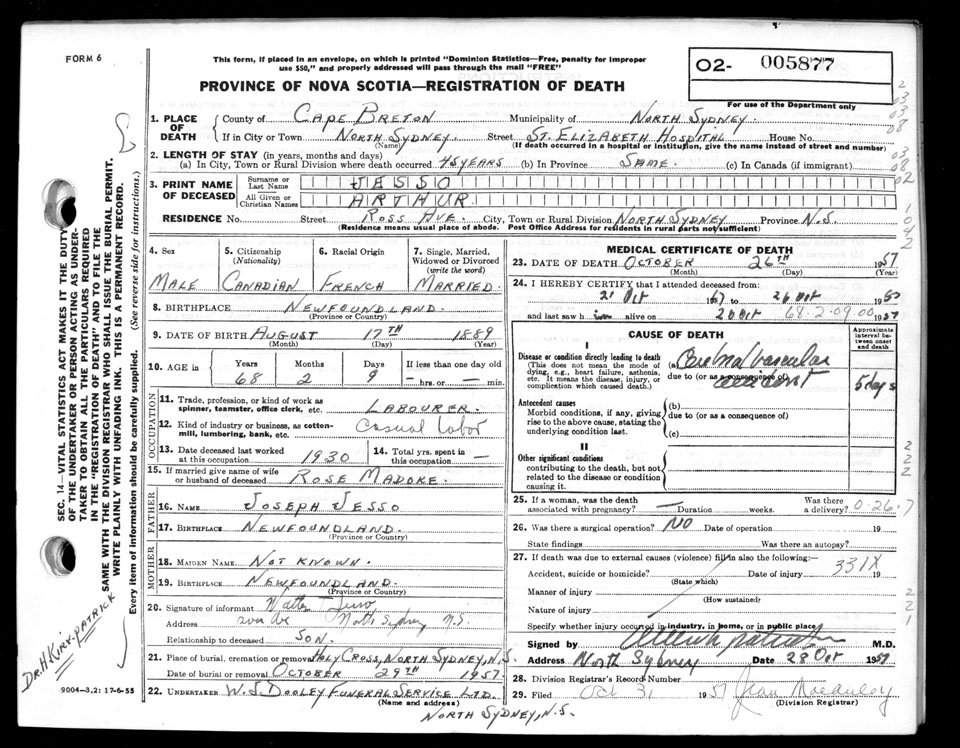 FORM 6
This form, if placed in an envelope, on which is printed "Dominion Statistics—Free, penalty for improper
use $50," and properly addressed will pass through the mail "FREE"
PROVINCE OF NOVA SCOTIA—REGISTRATION OF DEATH
02- 005877
For use of the Department only
1. PLACE OF DEATH
County of CAPE BRETON Municipality of NORTH SYDNEY.
If in City or Town NORTH SYDNEY. Street ST. ELIZABETH HOSPITAL House No.
(Name) (If death occurred in a hospital or institution, give the name instead of street and number)
2. LENGTH OF STAY (in years, months and days)
(a) In City, Town or Rural Division where death occurred 48 YEARS (b) In Province SAME. (c) In Canada (if immigrant)
3. PRINT NAME OF DECEASED
Surname or Last Name JESSO
All Given or Christian Names ARTHUR
RESIDENCE No. Street ROSS AVE. City, Town or Rural Division NORTH SYDNEY Province N.S.
(Residence means usual place of abode. Post Office Address for residents in rural parts not sufficient)
4. Sex MALE
5. Citizenship (Nationality) CANADIAN
6. Racial Origin FRENCH
7. Single, Married, Widowed or Divorced (write the word) MARRIED.
8. BIRTHPLACE NEWFOUNDLAND.
(Province or Country)
9. DATE OF BIRTH AUGUST 17TH 1889
(Month) (Day) (Year)
10. AGE in Years Months Days If less than one day old
68 2 9 — hrs. or — min.
OCCUPATION
11. Trade, profession, or kind of work as spinner, teamster, office clerk, etc. LABOURER.
12. Kind of industry or business, as cotton-mill, lumbering, bank, etc. Casual labor
13. Date deceased last worked at this occupation 1930
14. Total yrs. spent in this occupation —
15. If married give name of wife or husband of deceased ROSE MADORE.
FATHER
16. NAME JOSEPH JESSO
17. BIRTHPLACE NEWFOUNDLAND.
(Province or Country)
MOTHER
18. MAIDEN NAME NOT KNOWN.
19. BIRTHPLACE NEWFOUNDLAND.
(Province or Country)
20. Signature of informant Walter Jesso
Address North Sydney N.S.
Relationship to deceased SON.
21. Place of burial, cremation or removal HOLY CROSS, NORTH SYDNEY, N.S.
Date of burial or removal OCTOBER 29TH 1957.
22. UNDERTAKER W.J. DOOLEY FUNERAL SERVICE LTD.
(Name and address)
NORTH SYDNEY, N.S.
MEDICAL CERTIFICATE OF DEATH
23. DATE OF DEATH OCTOBER 26TH 1957
(Month) (Day) (Year)
24. I HEREBY CERTIFY that I attended deceased from:
21 Oct to 26 Oct
and last saw h im alive on Oct 68-2-09.00 1957
CAUSE OF DEATH
Approximate interval between onset and death
I
Disease or condition directly leading to death
(This does not mean the mode of dying, e.g., heart failure, asthenia, etc. It means the disease, injury, or complication which caused death.)
(a) Cerebral vascular
due to (or as a consequence of) accident 5 days
Antecedent causes
Morbid conditions, if any, giving rise to the above cause, stating the underlying condition last.
(b)
due to (or as a consequence of)
(c)
II
Other significant conditions
contributing to the death, but not related to the disease or condition causing it.
25. If a woman, was the death associated with pregnancy? — Duration weeks. Was there a delivery? 0-26-7
26. Was there a surgical operation? NO Date of operation 19
State findings Was there an autopsy?
27. If death was due to external causes (violence) fill in also the following:—
Accident, suicide or homicide? Date of injury 331X 19
(State which)
Manner of injury
(How sustained)
Nature of injury
Specify whether injury occurred in industry, in home, or in public place
Signed by M.D.
Address North Sydney Date 28 Oct 1957
28. Division Registrar's Record Number
29. Filed Oct 31 1957 Jean
(Division Registrar)
SEC. 14—VITAL STATISTICS ACT MAKES IT THE DUTY
OF THE UNDERTAKER OR PERSON ACTING AS UNDERTAKER
TO OBTAIN ALL THE PARTICULARS REQUIRED
IN THE "REGISTRATION OF DEATH" AND TO FILE THE
SAME WITH THE DIVISION REGISTRAR WHO SHALL ISSUE THE BURIAL PERMIT.
WRITE PLAINLY WITH UNFADING INK. THIS IS A PERMANENT RECORD.
Every item of information should be carefully supplied. (See reverse side for instructions.)
DR. H. KIRK-PATRICK
9004-3.2: 17-6-55